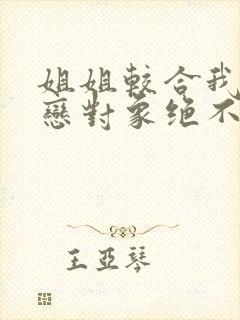 姐姐較合我
戀對象绝不
王亚琴